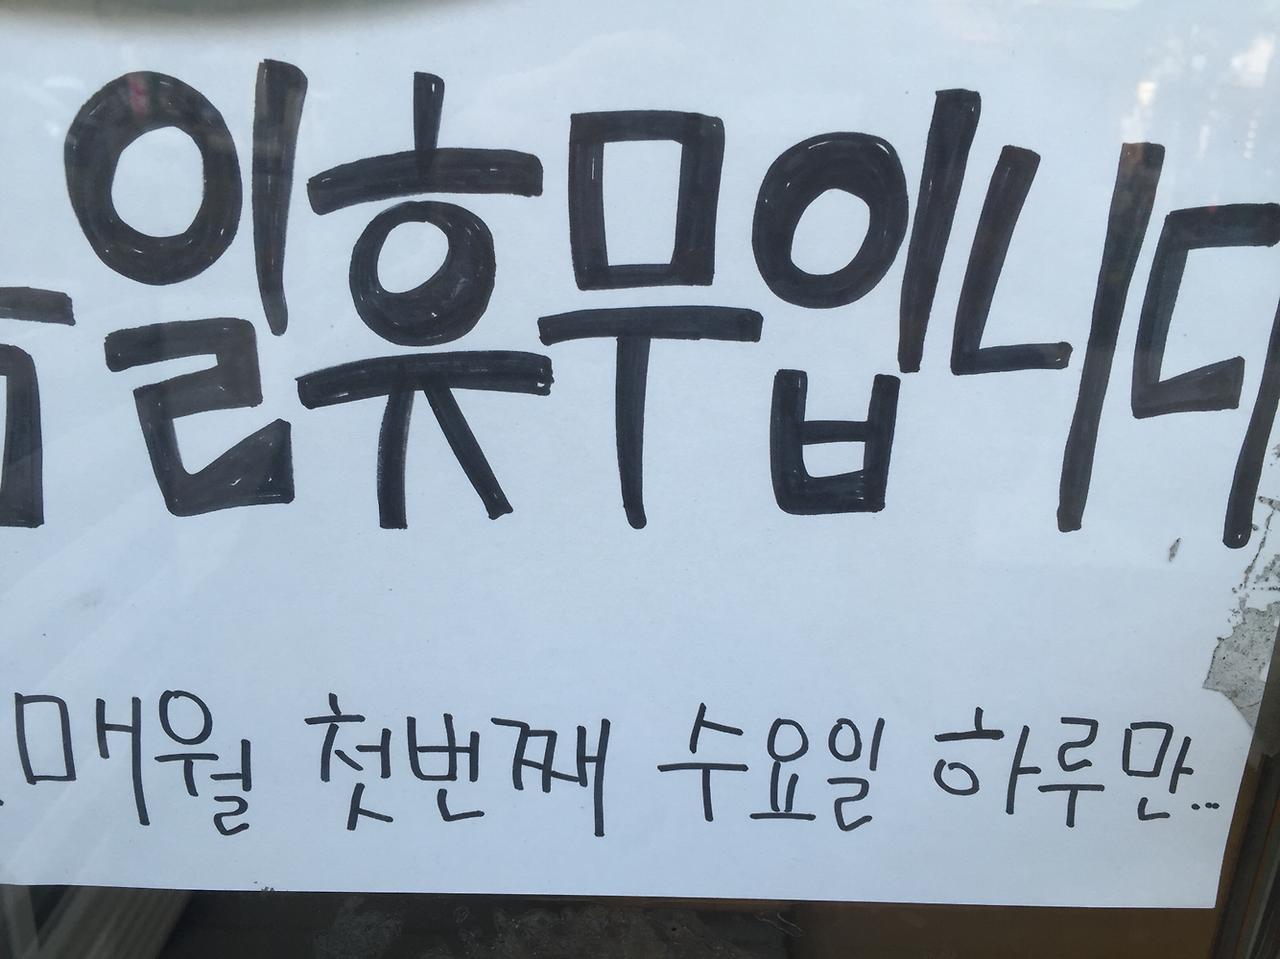 일 휴무입니다
매월 첫번째 수요일 하루만...